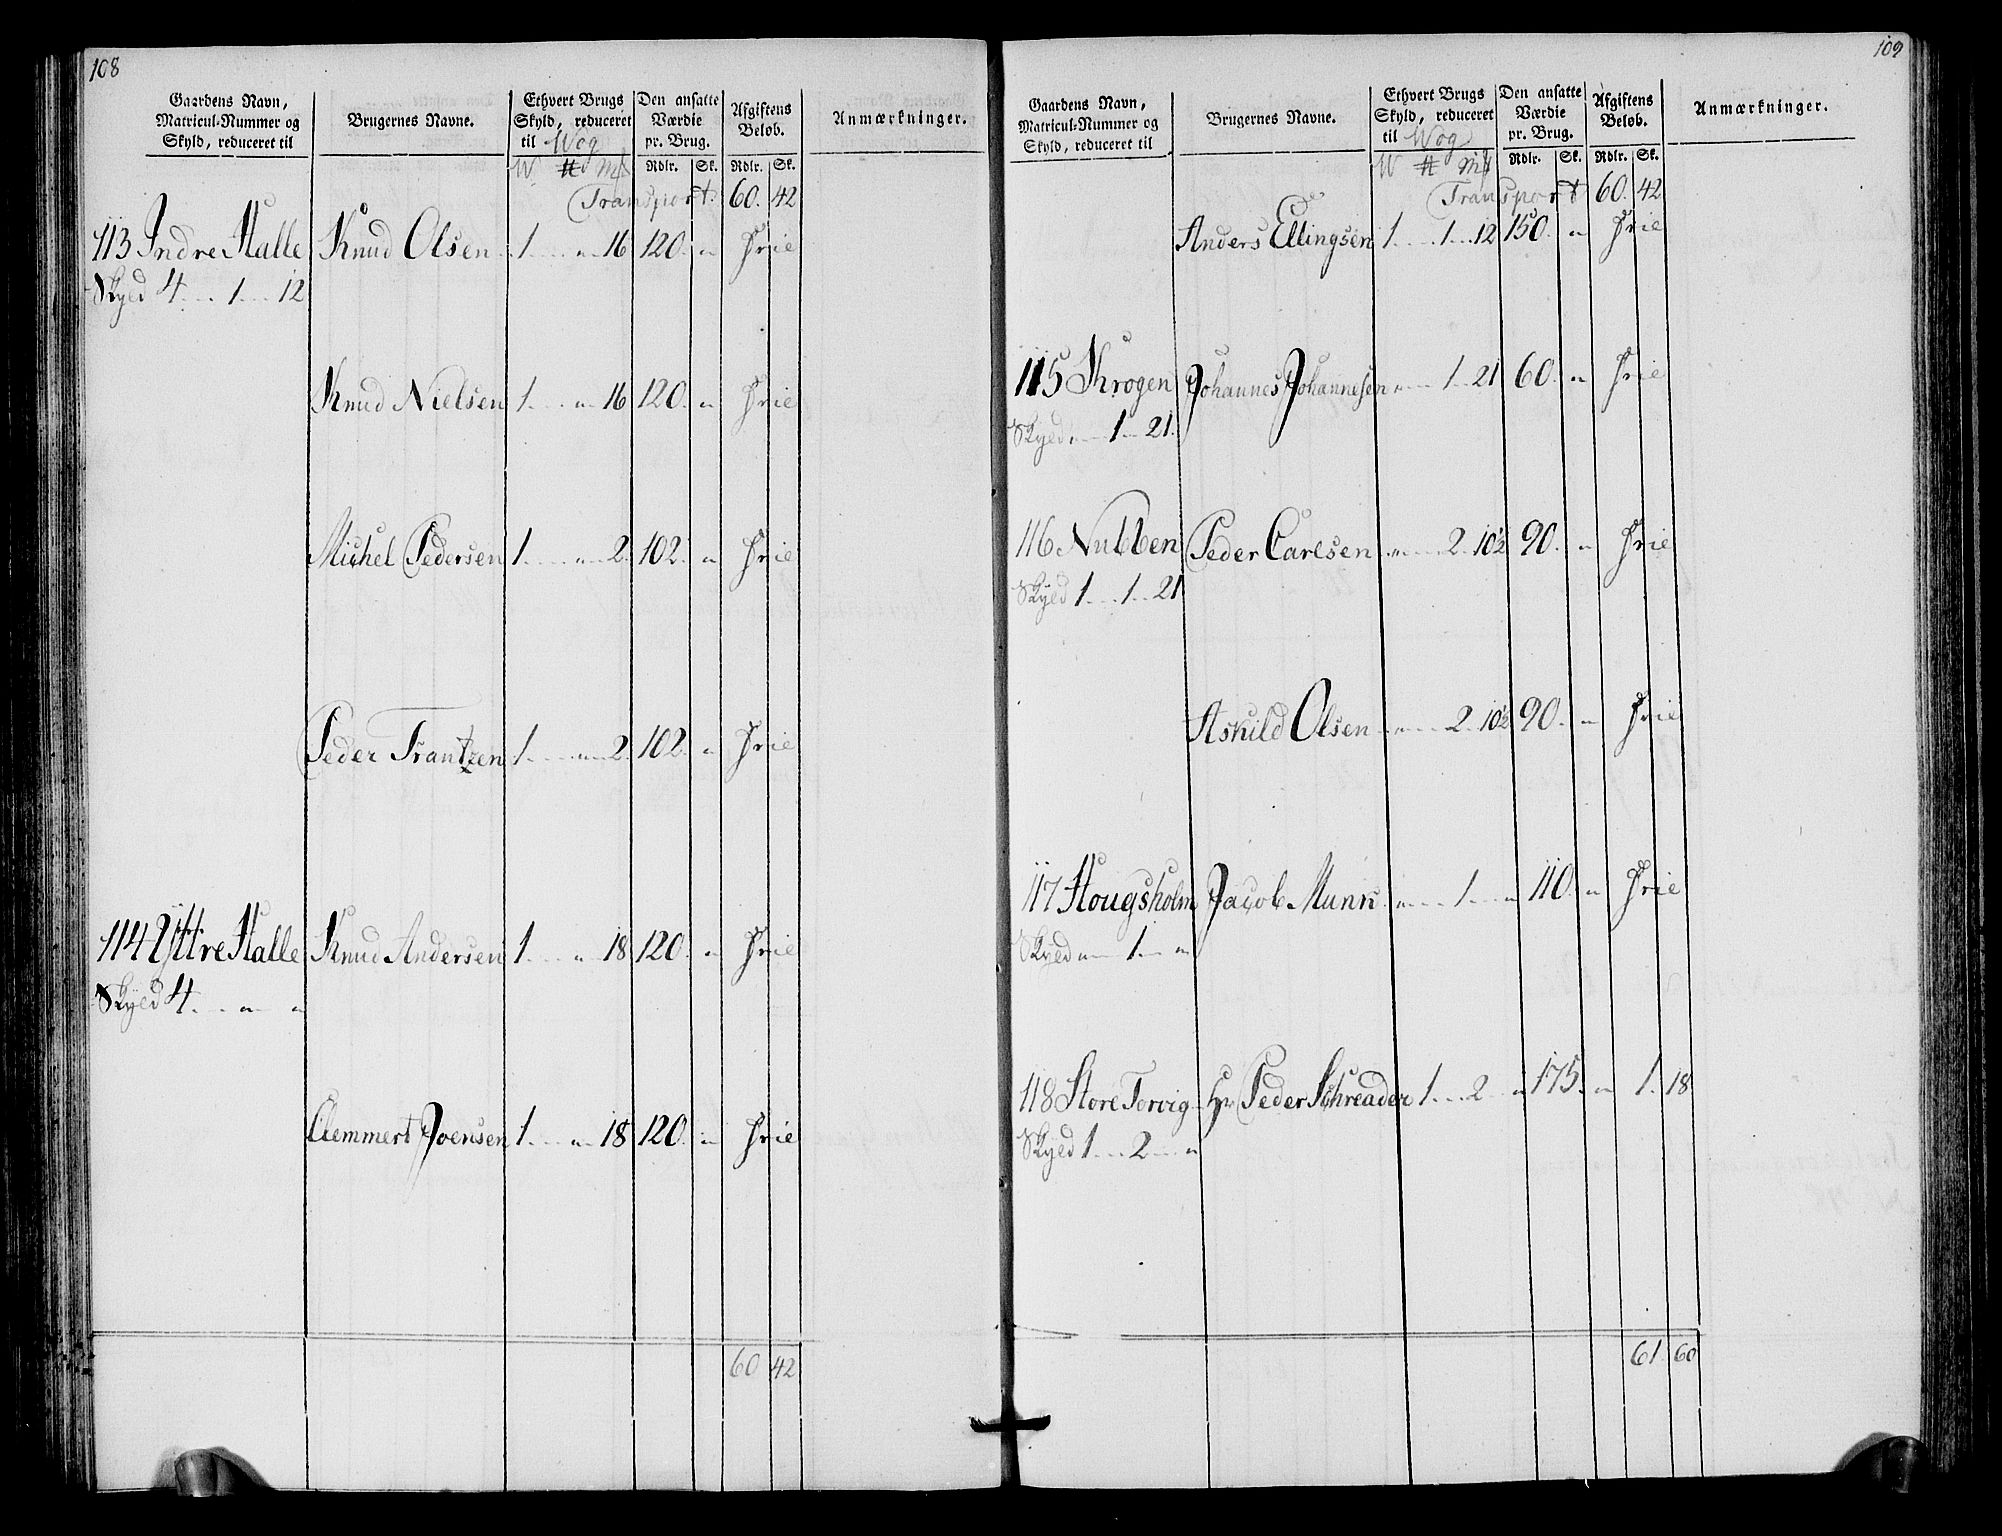 108
Gaardens Navn, Matricul-Nummer og Skyld, reduceret til | Brugernes Navne. | Ethvert Brugs Skyld, reduceret til Wog | Den ansatte Værdie pr. Brug. | Afgiftens Beløb. | Anmærkninger.
W. ℔ M℔ | Rdlr. | Sk. | Rdlr. | Sk.
Transport. 60. 42
113 Indre Halle | Knud Olsen | 1 . . . „ . . 16 | 120. | „ | Frie
Skyld 4 . . . 1 . . . 12
Knud Nielsen | 1 . . . „ . . 16 | 120. | „ | Frie
Michel Pedersen | 1 . . . „ . . 2. | 102. | „ | Frie
Peder Frantzen | 1 . . . „ . . 2. | 102. | „ | Frie
114 Yttre Halle | Knud Andersen | 1 . . . „ . . 18 | 120. | „ | Frie
Skyld 4 . . . „ . . . „
Clemmert Joensen | 1 . . . „ . . 18 | 120. | „ | Frie
60 | 42
109
Gaardens Navn, Matricul-Nummer og Skyld, reduceret til | Brugernes Navne. | Ethvert Brugs Skyld, reduceret til Wog | Den ansatte Værdie pr. Brug. | Afgiftens Beløb. | Anmærkninger.
W ℔ m℔ | Rdlr. | Sk. | Rdlr. | Sk.
Transport 60. 42
Anders Ellingsen | 1 . . . 1 . . 12 | 150. | „ | Frie
115 Krogen | Johannes Johannesen | „ . . . 1 . . 21 | 60. | „ | Frie
Skyld „ . . . 1 . . 21.
116 Nubben | Peder Carlsen | „ . . . 2. 10½ | 90. | „ | Frie
Skyld 1 . . . 1 . . 21
Askild Olsen | „ . . . 2 . 10½ | 90. | „ | Frie
117 Hougsholm | Jacob Munk | „ . . . 1 . . . „ | 110. | „ | Frie
Skyld „ . . . 1 . . „
118 Store Torvig | Hr Peder Schreader | 1 . . . 2 . . „ | 175. | „ | 1. | 18
Skyld 1 . . . 2 . . . „
61 | 60